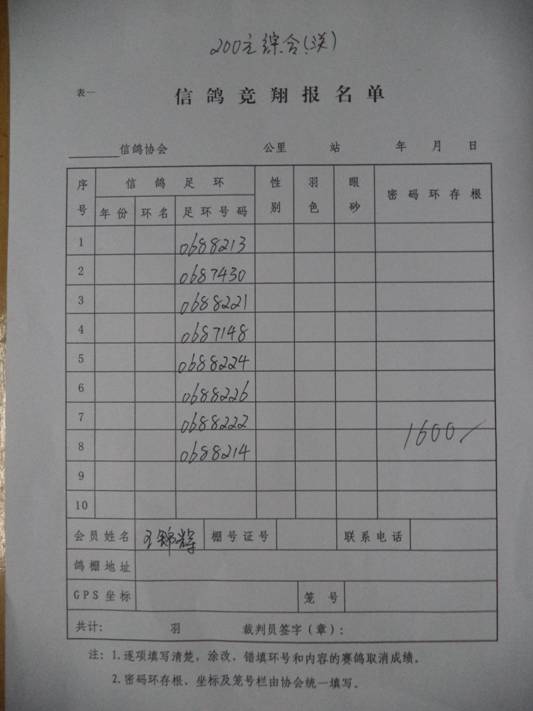 200主综合(3关)
表一
信鸽竞翔报名单
信鸽协会 公里 站 年 月 日
序号 信鸽足环 性别 羽色 眼砂 密码环存根
年份 环名 足环号码
1 0688213
2 0687430
3 0688221
4 0687148
5 0688224
6 0688226
7 0688222
8 0688214 1600/
9
10
会员姓名 王锦辉 棚号证号 联系电话
鸽棚地址
GPS坐标 笼号
共计: 羽 裁判员签字(章):
注: 1.逐项填写清楚,涂改,错填环号和内容的赛鸽取消成绩。
2.密码环存根、坐标及笼号栏由协会统一填写。